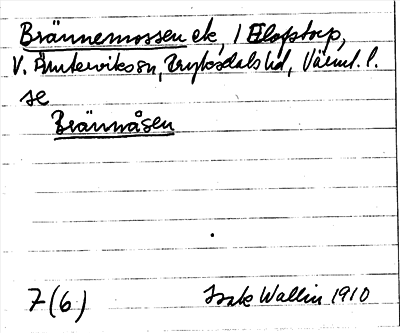 Brännemossen ek, / Elofstorp,
V. Ämterviks sn, Fryksdals hd, Värml. l.
se
Brännåsen
7(6) Isak Wallin 1910